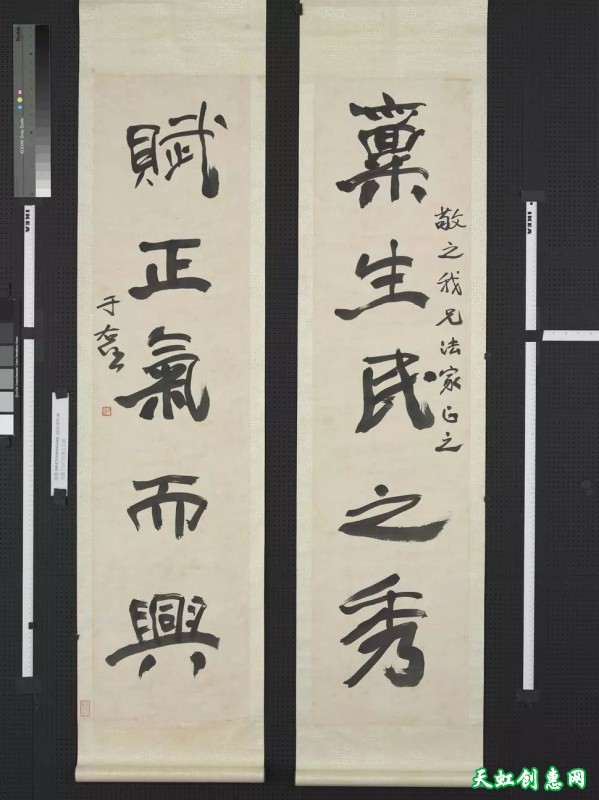 稟生民之秀
敬之我兄法家正之
賦正氣而興
于右任
IKEA
IKEA
天虹创惠网